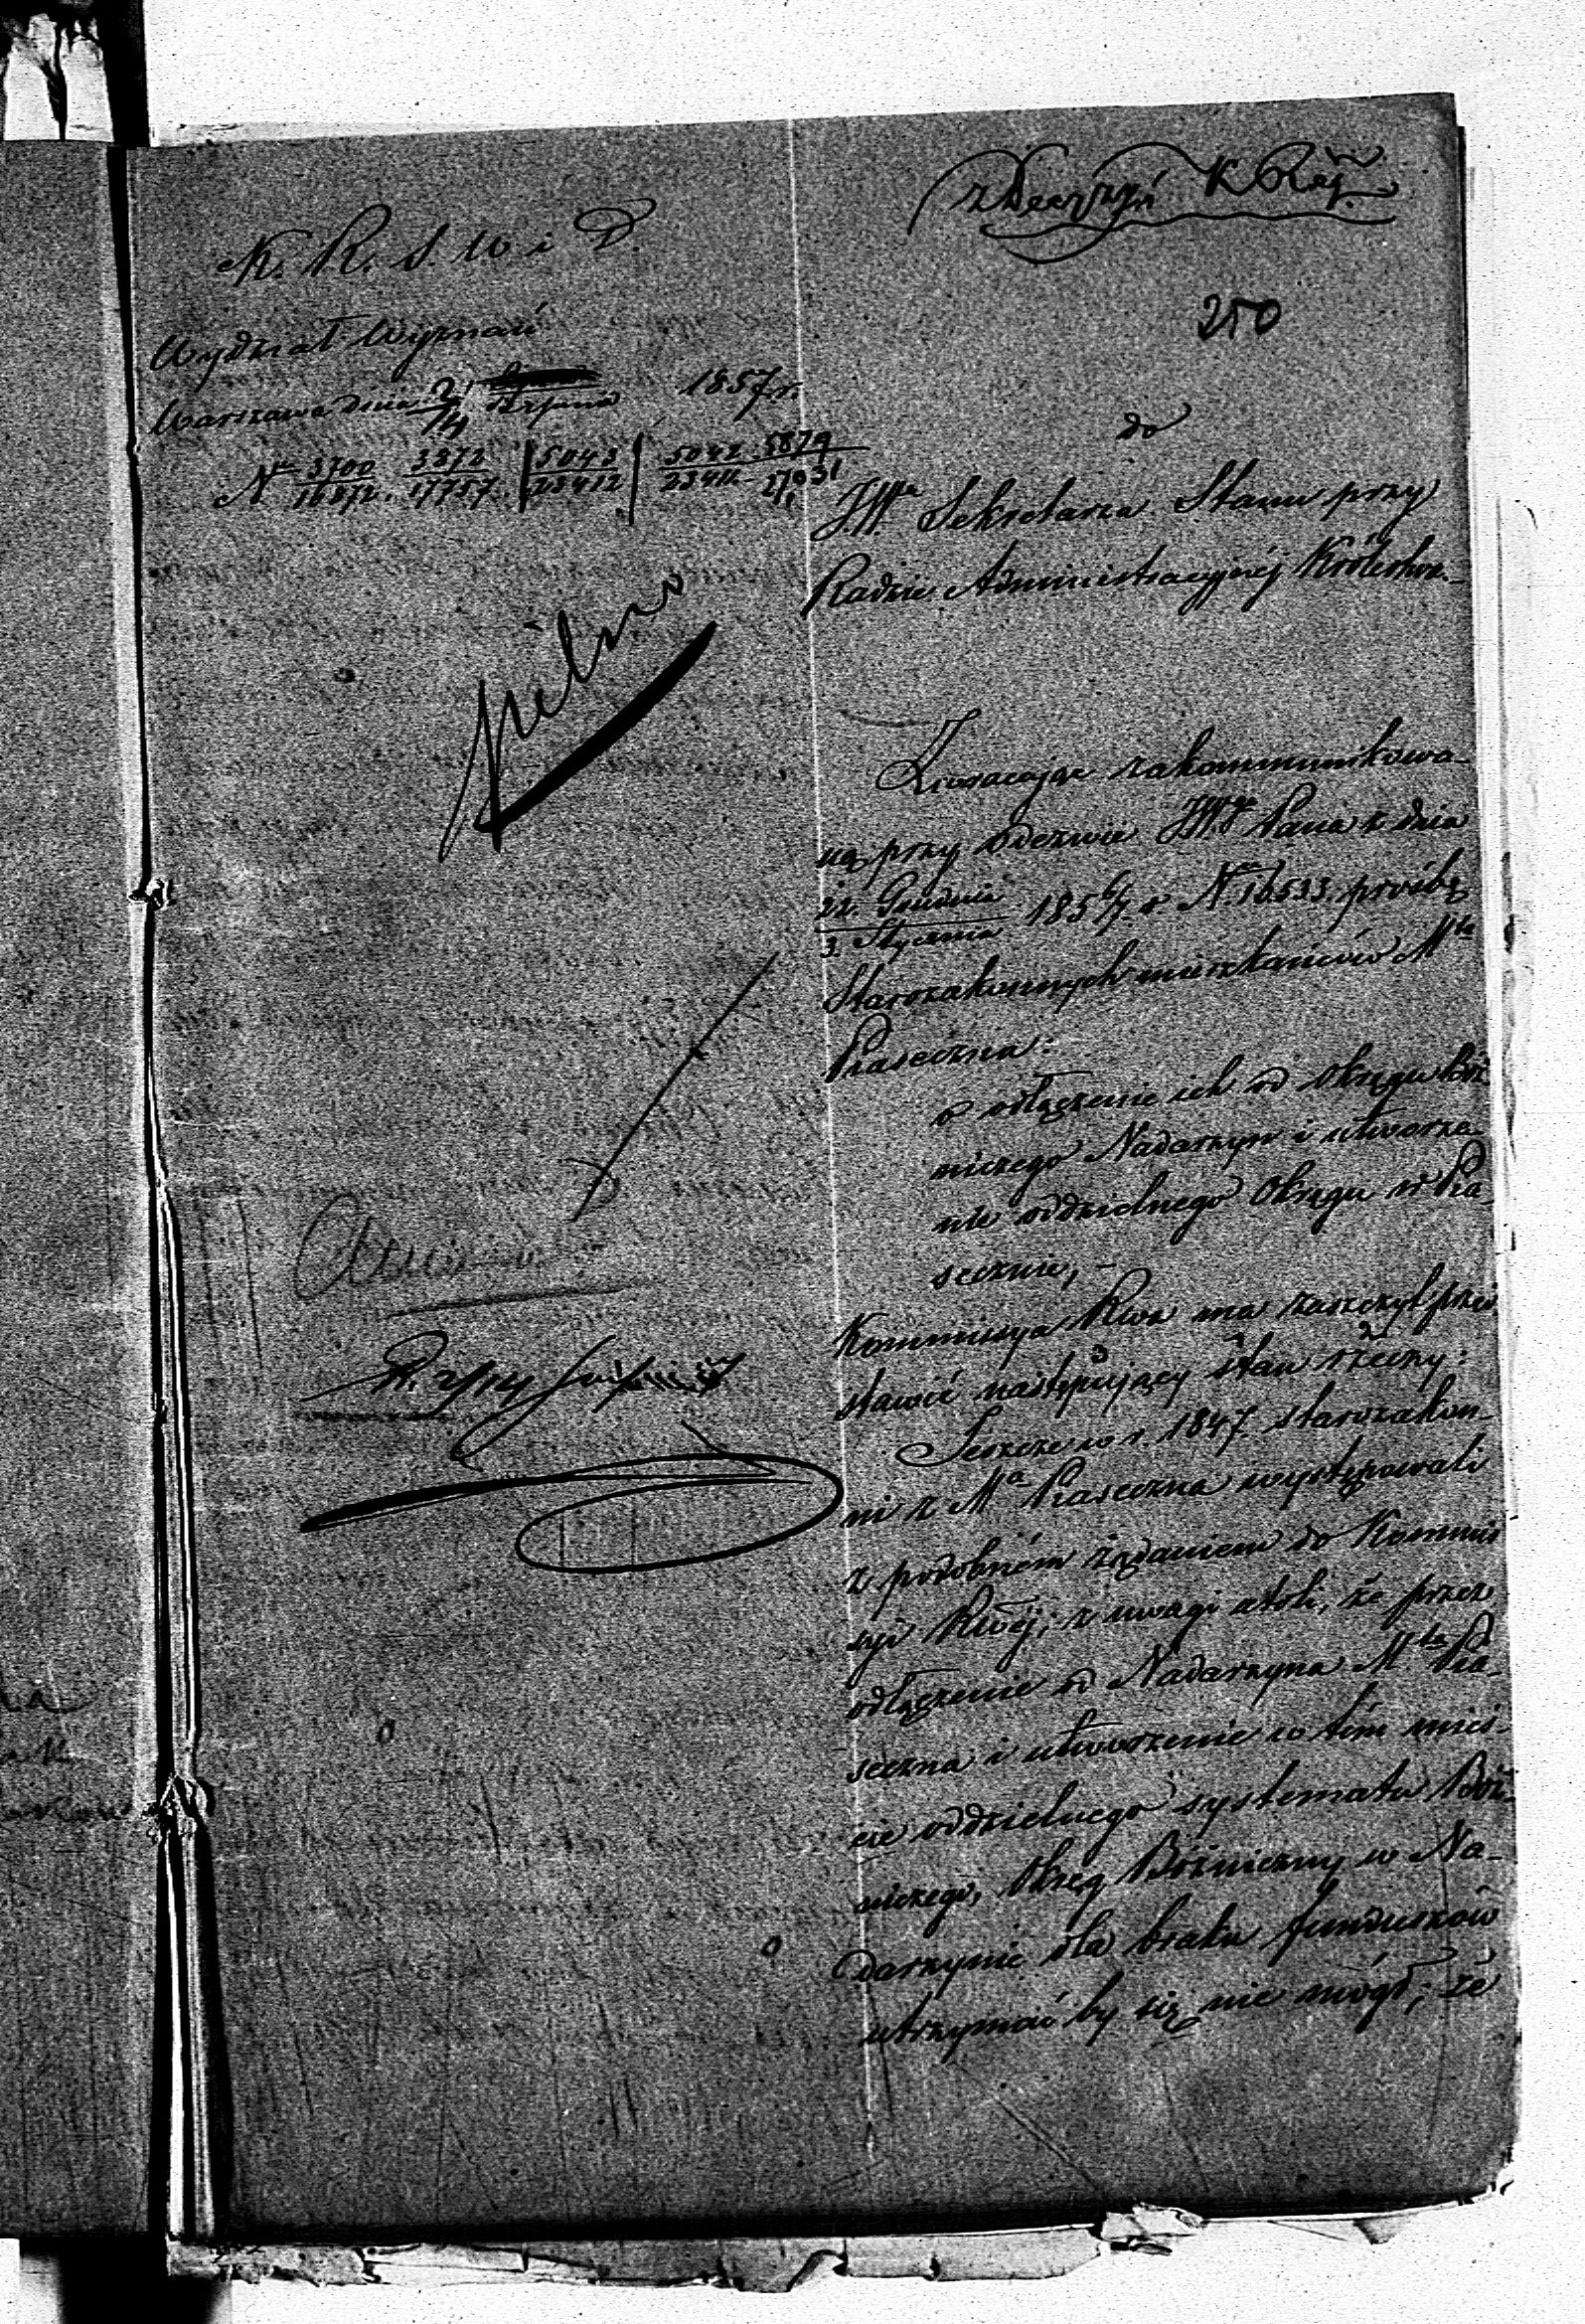 K. R. S. W i D.
Wydział Wyznań
Warszawa dnia 2/14 Sierpnia 1857 r.
No 3700/16872. 3872/17757. | 5043/23412 | 5042/23411 - 5879/27,031
pilno
250
do
JWgo Sekretarza Stanu przy
Radzie Administracyjnéj Królestwa.
Zwracając zakommunikowa-
ną przy odezwie JWgo Pana z dnia
22. Grudnia/3. Stycznia 1856/7. r. No 16533. prośbę
Starozakonnych mieszkańców Mta
Piaseczna:
o odłączenie ich od Okręgu Boż
niczego Nadarzyn i utworze-
nie oddzielnego Okręgu w Pia-
secznie, -
Kommissya Rwa ma zaszczyt przed
stawić następujący stan rzeczy:
Jeszcze w r. 1847. starozakon-
ni z Ma Piaseczna występowali
z podobném żądaniem do Kommis
syi Rwéj; z uwagi atoli, że przez
odłączenie od Nadarzyna Mta Pia-
seczna i utworzenie w tém mieś-
cie oddzielnego systematu Boż-
niczego, Okręg Bożniczny w Na-
darzynie dla braku funduszów
utrzymać by się nie mógł; że